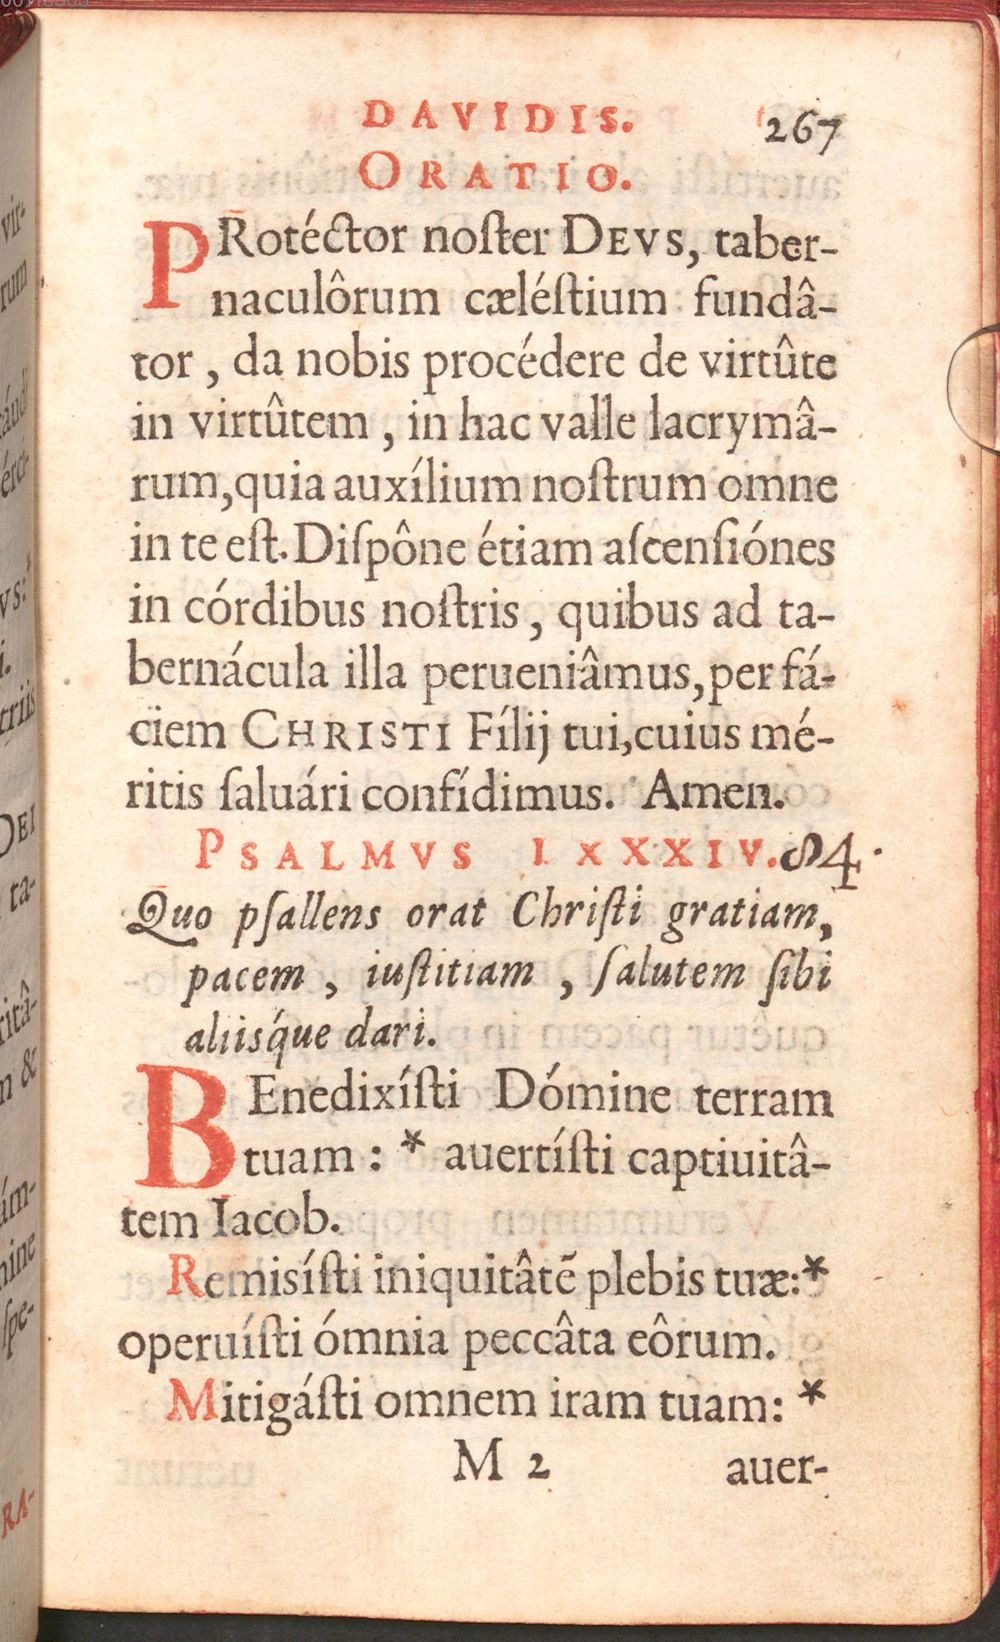 DAVIDIS. 267
ORATIO.
PRotéctor noſter DEVS, taber-
naculôrum cæléſtium fundâ-
tor, da nobis procédere de virtûte
in virtûtem, in hac valle lacrymâ-
rum, quia auxílium noſtrum omne
in te eſt. Diſpône étiam aſcenſiónes
in córdibus noſtris, quibus ad ta-
bernácula illa perueniâmus, per fá-
ciem CHRISTI Fílij tui, cuius mé-
ritis ſaluári confídimus. Amen.
PSALMVS LXXXIV. 84.
Quo pſallens orat Chriſti gratiam,
pacem, iuſtitiam, ſalutem ſibi
aliisq́ue dari.
BEnedixíſti Dómine terram
tuam: * auertíſti captiuitâ-
tem Iacob.
Remisíſti iniquitâtẽ plebis tuæ: *
operuíſti ómnia peccâta eôrum.
Mitigáſti omnem iram tuam: *
M 2 auer-